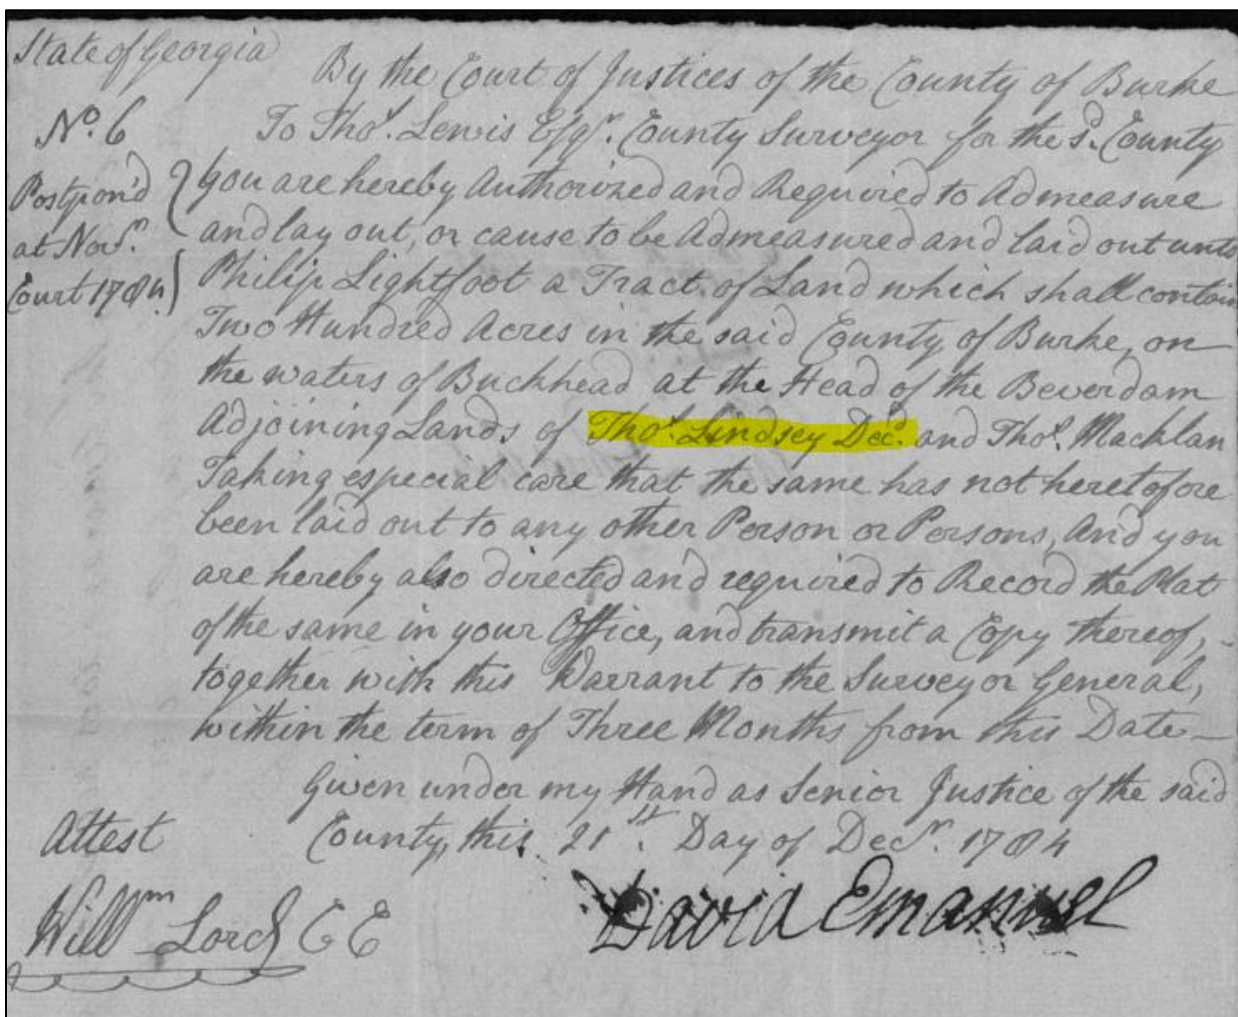 State of Georgia
By the Court of Justices of the County of Burke
No. 6
To Thos. Lewis Esqr. County Surveyor for the sd. County
Postpon'd
at Novr.
Court 1784.
You are hereby Authorized and Required to Admeasure
and lay out, or cause to be Admeasured and laid out unto
Philip Lightfoot a Tract of Land which shall contain
Two Hundred Acres in the said County of Burke, on
the waters of Buckhead at the Head of the Beverdam
Adjoining Lands of Thos. Lindsey Decd. and Thos. Macklan
Taking especial care that the same has not heretofore
been laid out to any other Person or Persons, And you
are hereby also directed and required to Record the Plat
of the same in your Office, and transmit a Copy thereof,
together with this Warrant to the Surveyor General,
within the term of Three Months from this Date—
Given under my Hand as Senior Justice of the said
County, this 21st. Day of Decr. 1784
Attest
Willm Lord C C
David Emanuel